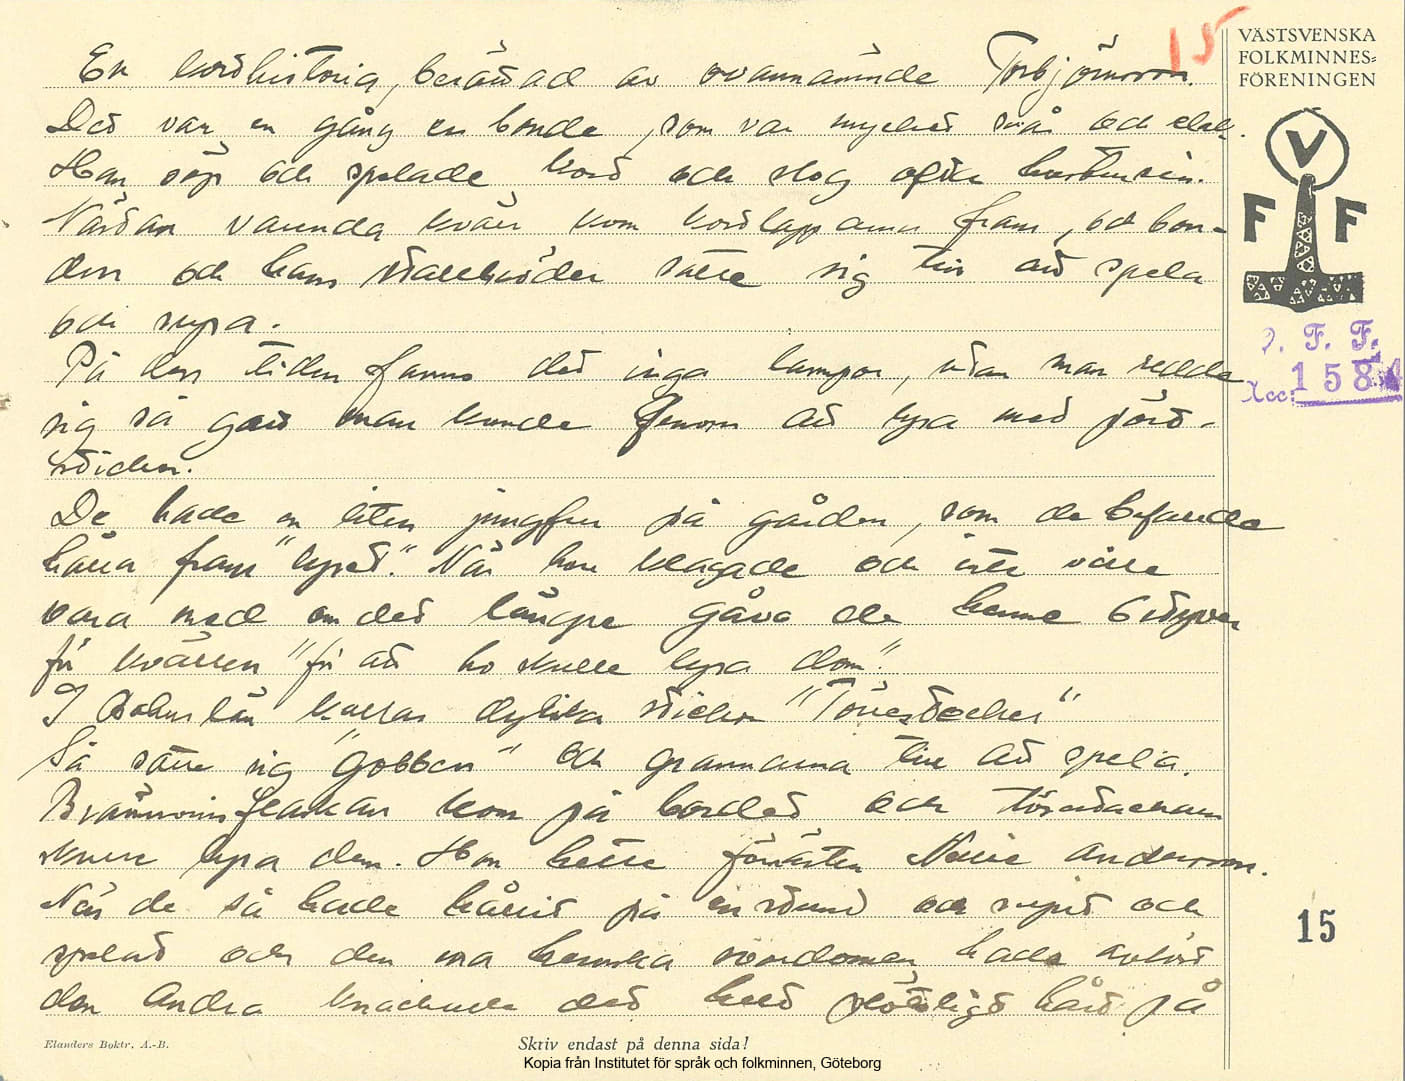 15
VÄSTSVENSKA
FOLKMINNES-
FÖRENINGEN
V
F F
V. F. F.
Acc: 1584
En kordhistoria, berättad av ovannämnde Torbjörnsson.
Det var en gång en bonde, som var mycket snål och elak.
Han söp och spelade kort och slog ofta hustrun sin.
Nästan varenda kväll kom kortlapparna fram, och bon-
den och hans stallbröder satte sig till att spela
och supa.
På den tiden fanns det inga lampor, utan man redde
sig så gott man kunde genom att lysa med törd-
stickor.
De hade en liten jungfru på gården, som de befallde
hålla fram "lyset". När hon klagade och inte ville
vara med om det längre gåvo de henne 6 styver
för kvällen "för att ho skulle lysa dom".
I Bohuslän kallas dylika stickor "Törestecker"
Så satte sig "Gobben" och grannarna till att spela.
Brännvinsflaskan kom på bordet och
skulle lysa den. Hon hette förresten Andersson.
När de så hade hållit på en stund och supit och
spelat och den ena hemska svordomen hade avlöst
den andra knackade det helt plötsligt hårt på
15
Elanders Boktr. A.-B.
Skriv endast på denna sida!
Kopia från Institutet för språk och folkminnen, Göteborg